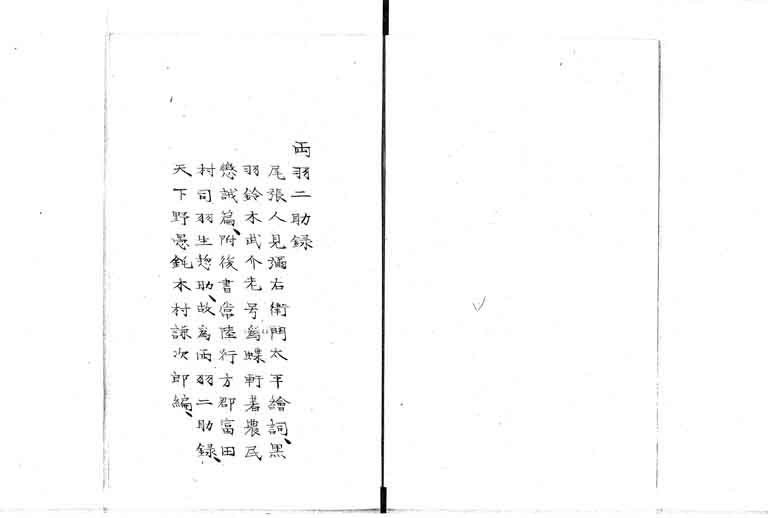 両羽二助録
尾張人見彌右衛門太平繪詞、黒
羽鈴木武介老号為蝶軒著農民
懲誡篇、附後書常陸行方郡富田
村司羽生惣助、故為両羽二助録、
天下野愚鈍木村謙次郎編、